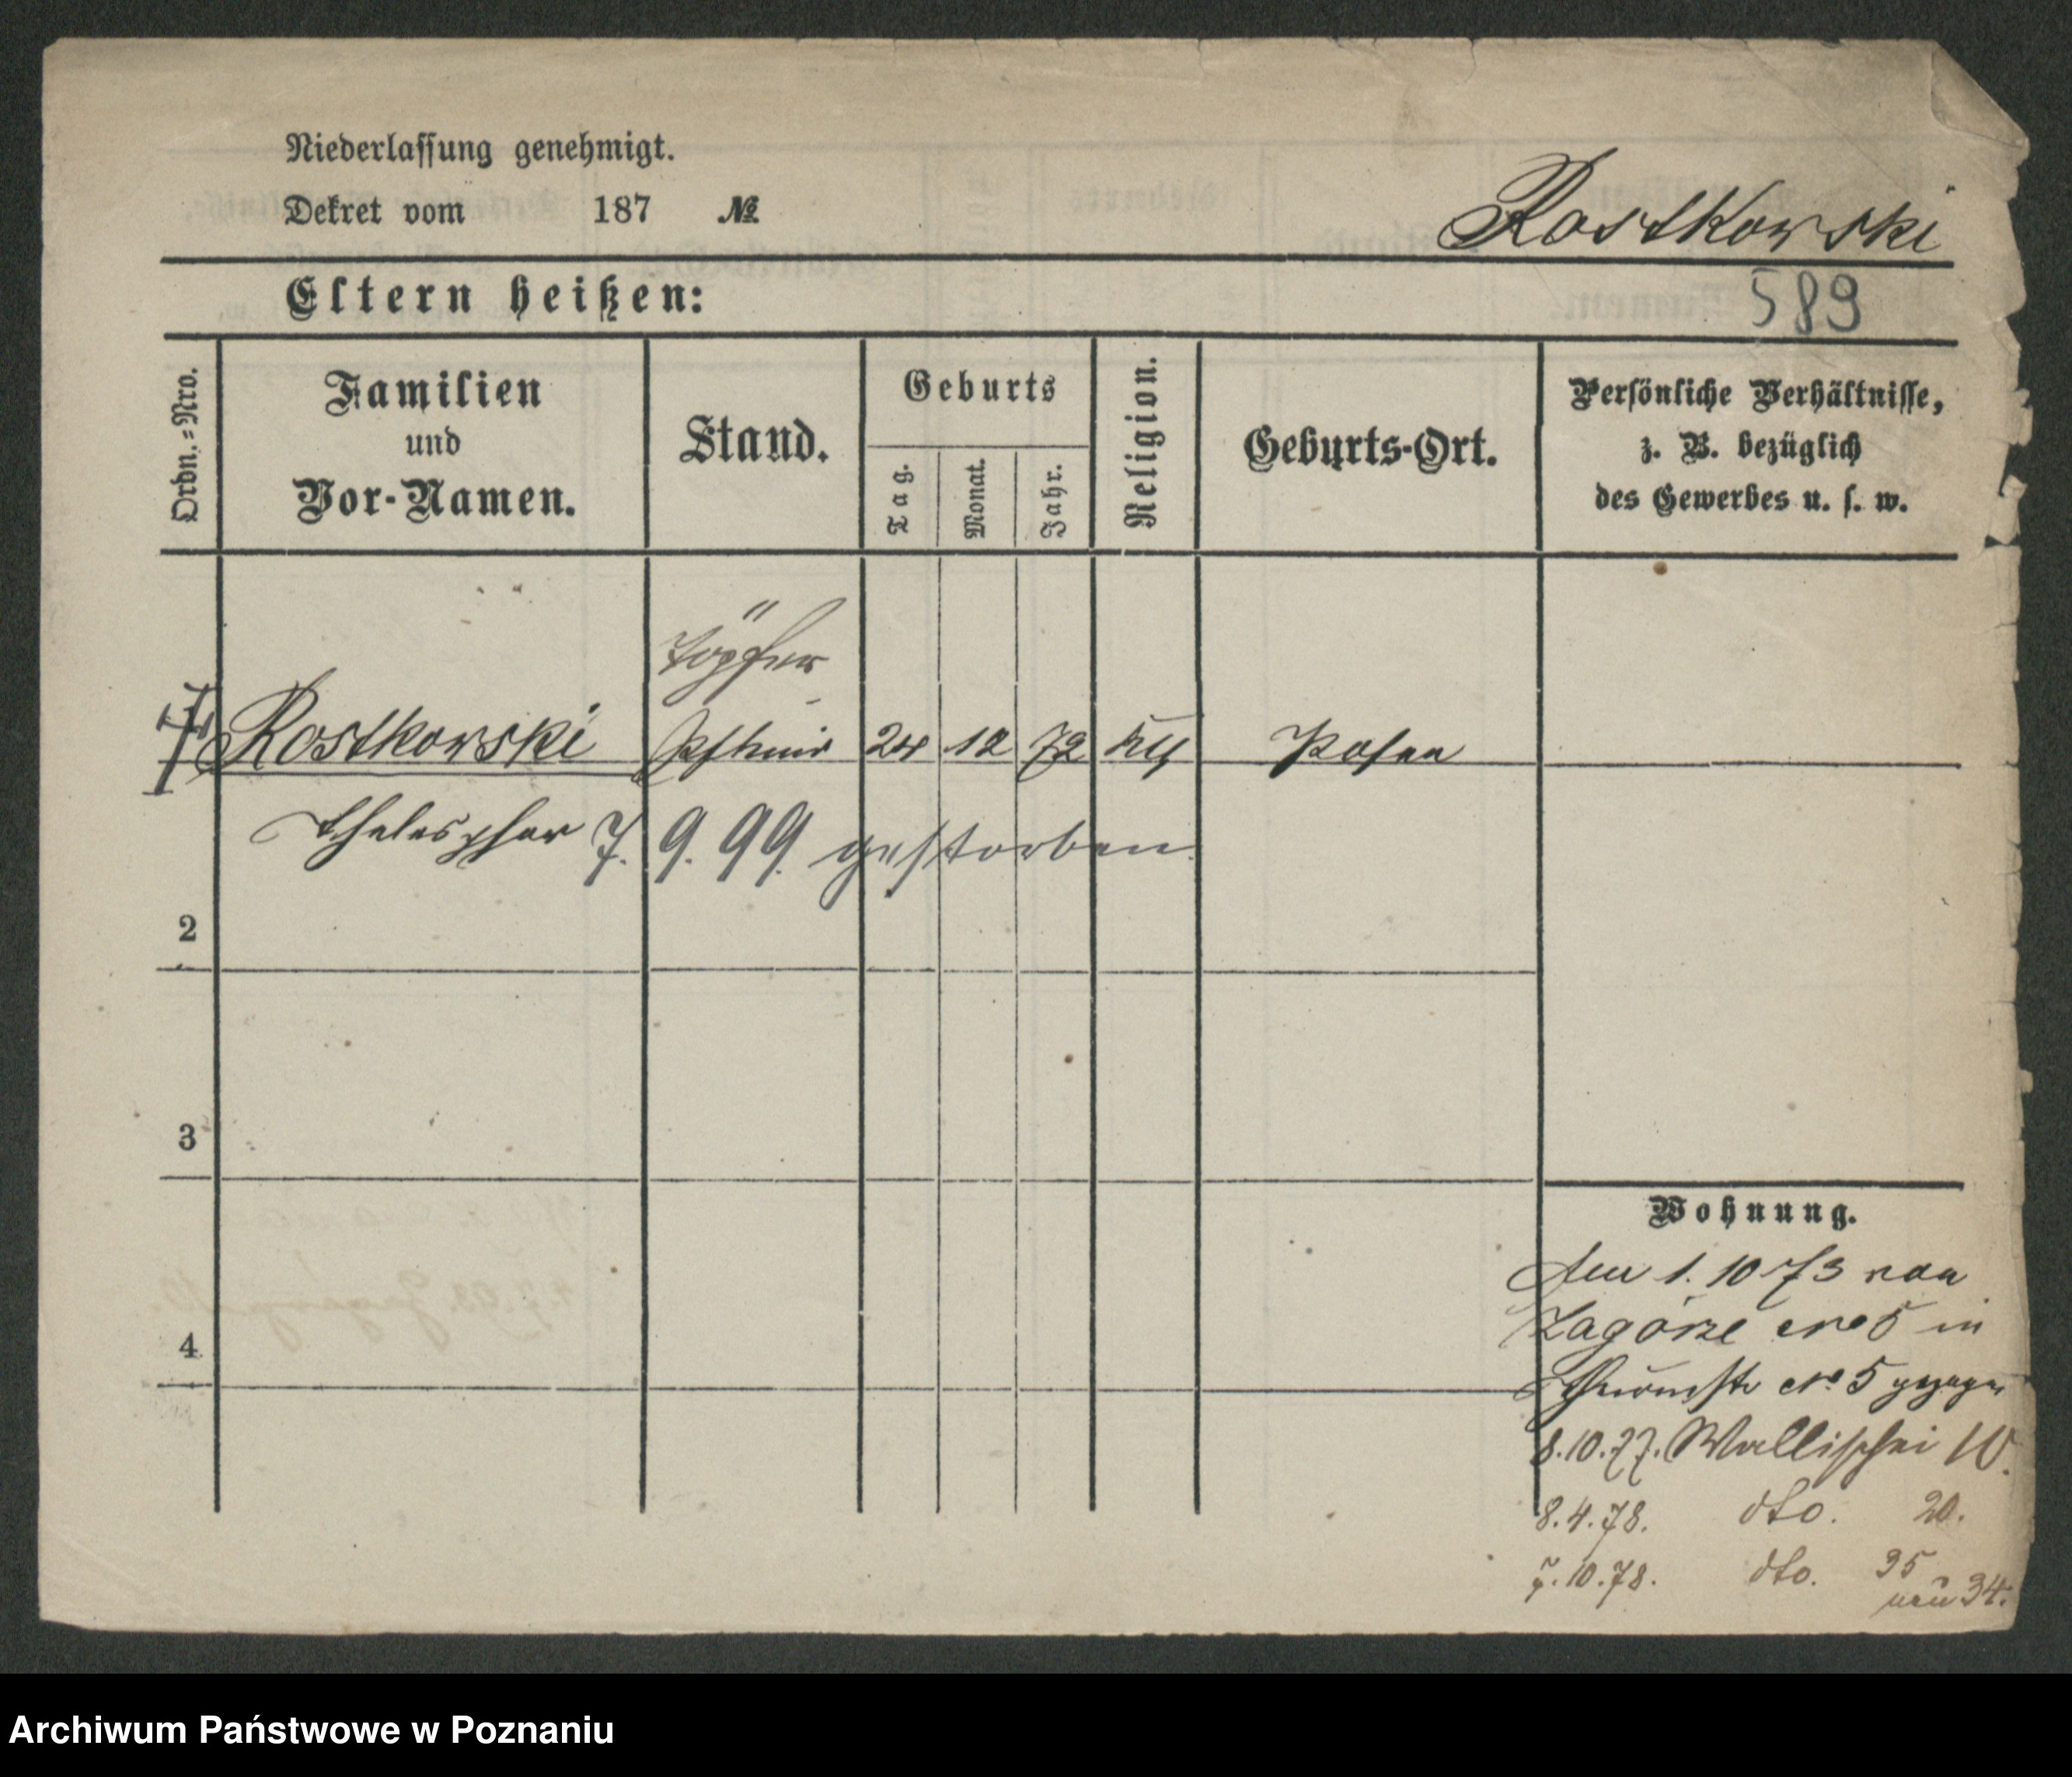 Niederlassung genehmigt.
Dekret vom 187 №
Rostkowski
Eltern heißen:
589
Ordn.=Nro.
Familien
und
Vor-Namen.
Stand.
Geburts
Tag.
Monat.
Jahr.
Religion.
Geburts-Ort.
Persönliche Verhältnisse,
z. B. bezüglich
des Gewerbes u. s. w.
Töpfer
Rostkowski 24 12 72 kth Posen
Thelesphor 7. 9. 99 gestorben.
2
3
4
Wohnung.
den 1. 10 73 von
Zagórze No 5 in
No 5 gezogen
8.10.77. Wallischei 10.
8.4.78. dto. 20.
7.10.78. dto. 35
neu 34.
Archiwum Państwowe w Poznaniu